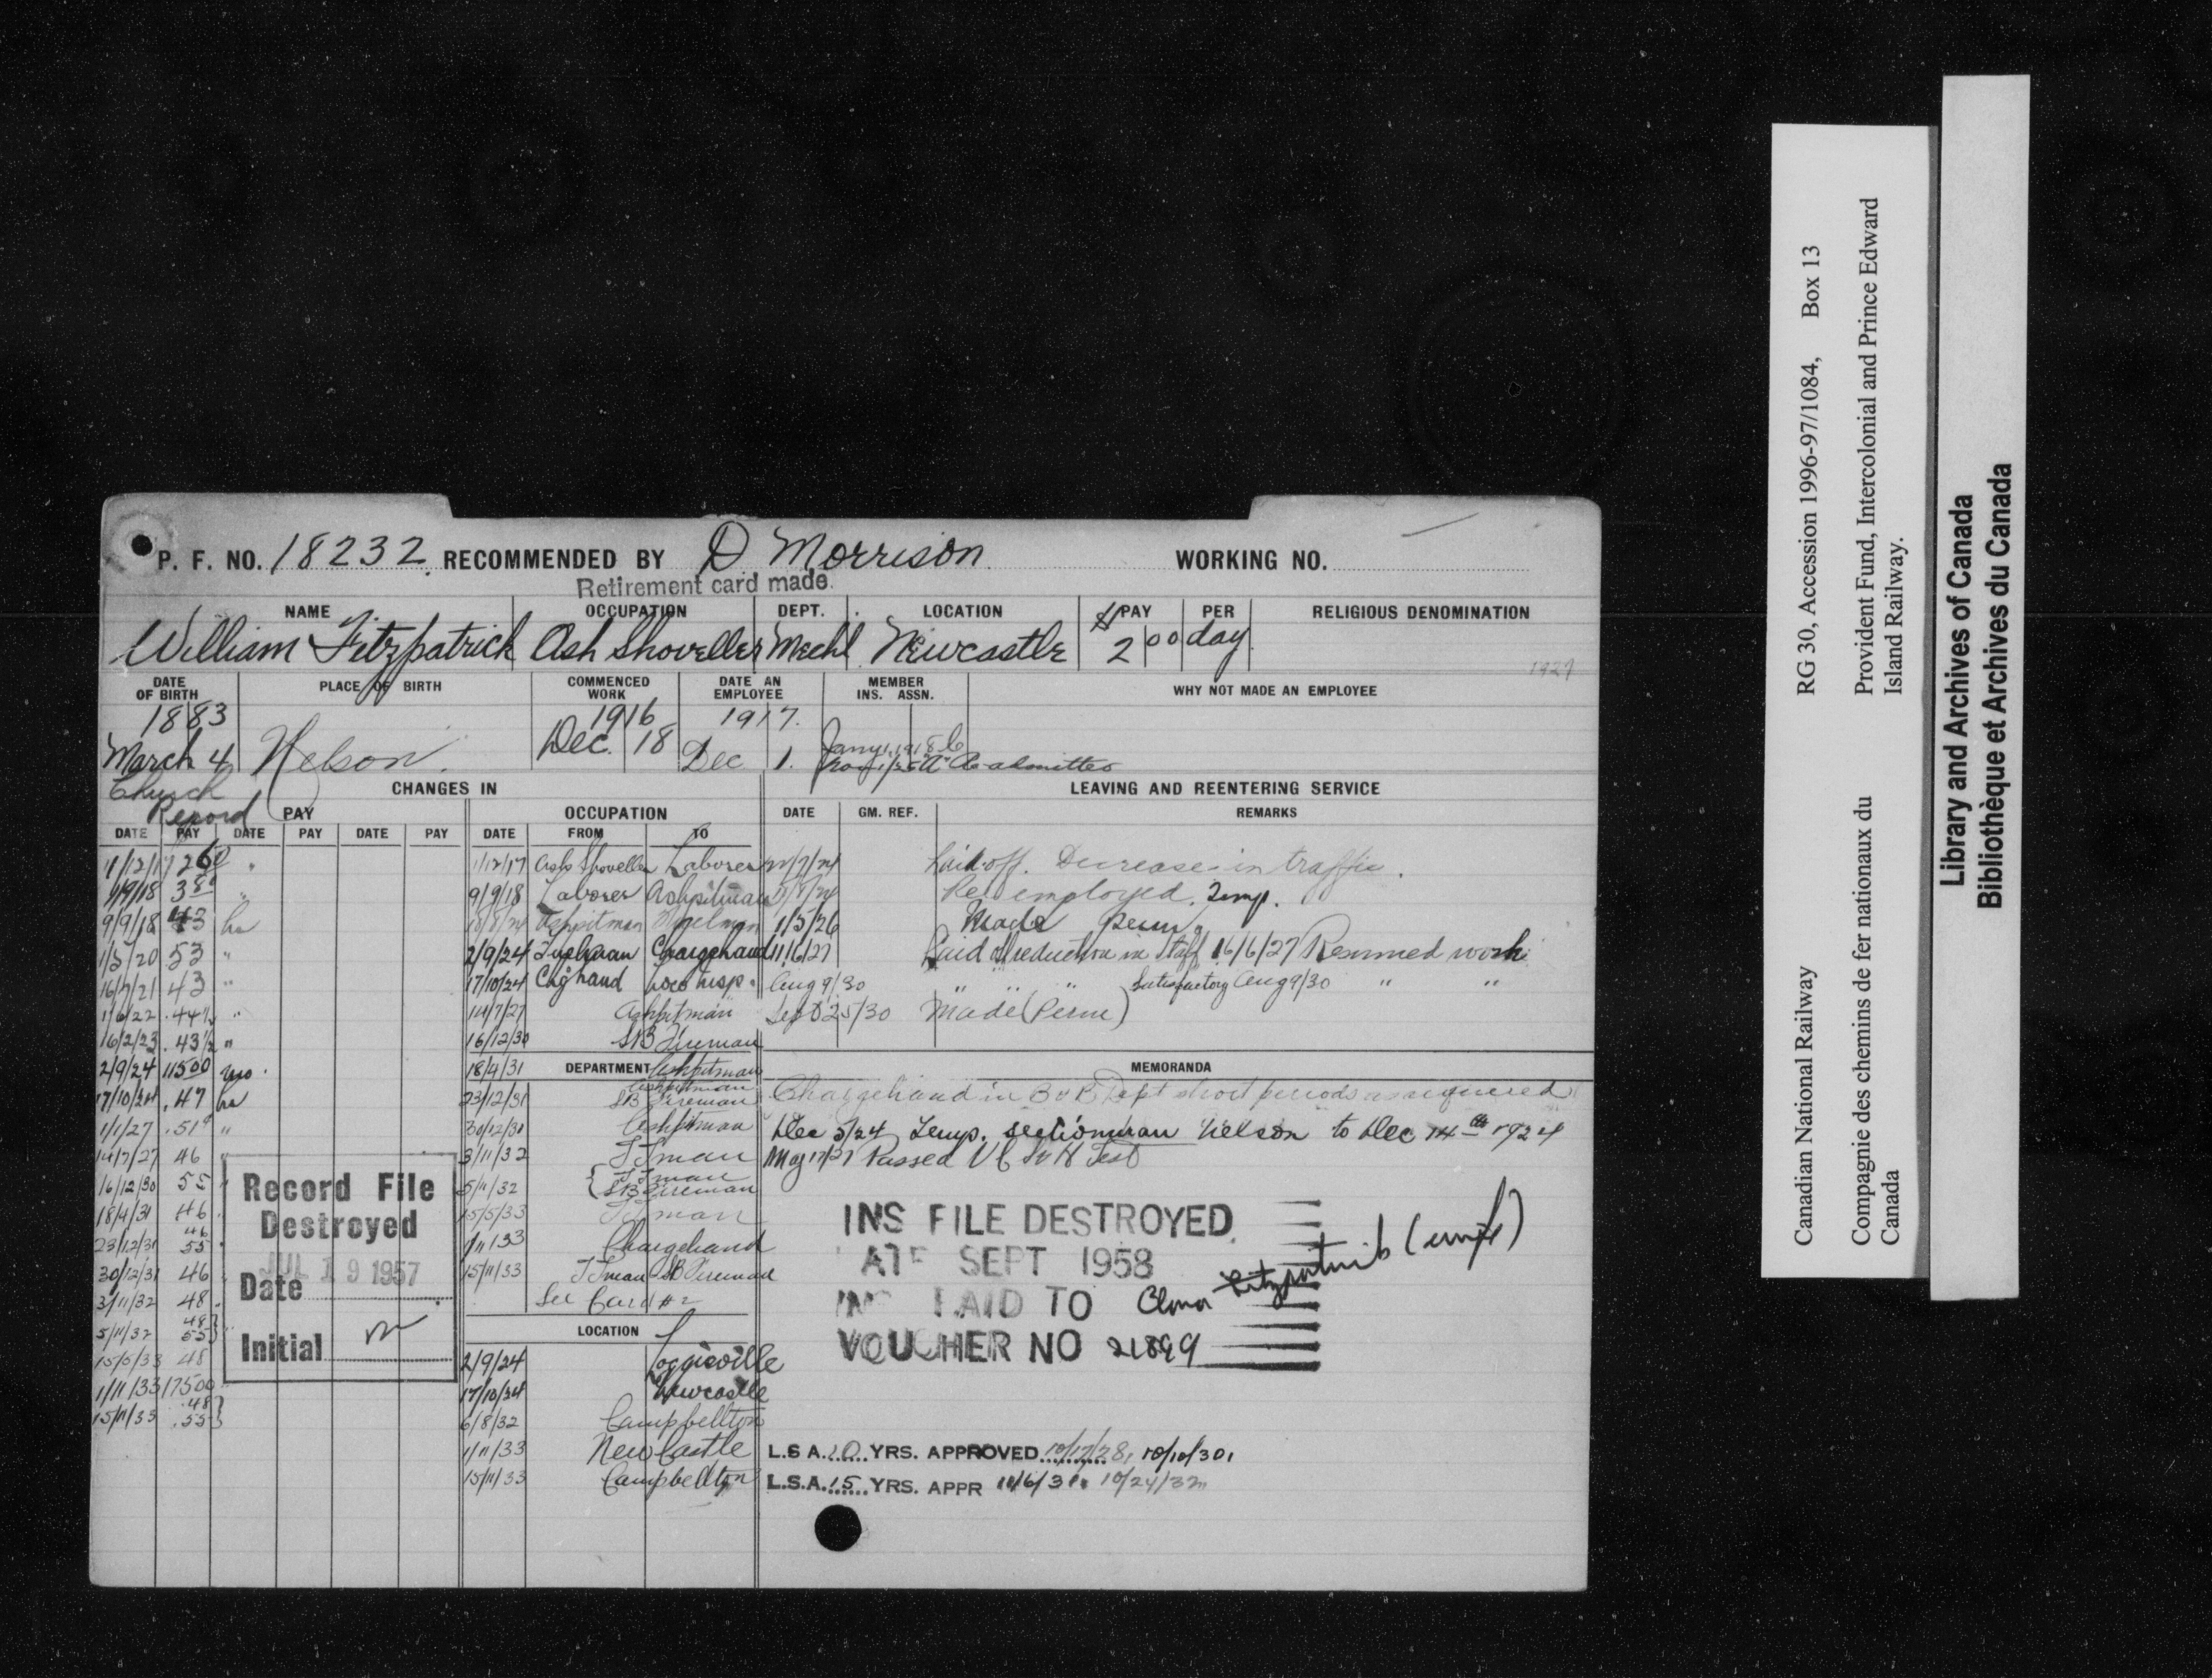 P. F. NO. 18232 RECOMMENDED BY D Morrison WORKING NO.
Retirement card made.
NAME OCCUPATION DEPT. LOCATION $ PAY PER RELIGIOUS DENOMINATION
William Fitzpatrick Ash Shoveller Mechl Newcastle 2 00 day
1927
DATE OF BIRTH PLACE OF BIRTH COMMENCED WORK DATE AN EMPLOYEE MEMBER INS. ASSN. WHY NOT MADE AN EMPLOYEE
1883 1916 1917.
March 4 Nelson. Dec. 18 Dec 1. Jany 1, 1918
Church
Record
CHANGES IN LEAVING AND REENTERING SERVICE
PAY OCCUPATION DATE GM. REF. REMARKS
DATE PAY DATE PAY DATE PAY DATE FROM TO
1/12/17 2 60 " 1/12/17 Ash Shoveller Laborer Laid off. Decrease in traffic.
1/9/18 3 80 " 9/9/18 Laborer Ashpitman Re employed. Temp.
9/9/18 43 hr Ashpitman 1/5/26 Made perm.
1/5/20 53 " 2/9/24 Fuelman Chargehand 11/6/27 Laid off reduction in staff 16/6/27 Resumed work
16/7/21 43 " 17/10/24 Chghand Loco insp. Aug 9/30 " " " Satisfactory Aug 9/30 " "
1/6/22 .44½ " 14/7/27 Ashpitman Sept 25/30 Made (Perm)
16/2/23 .43½ " 16/12/30 SB Fireman
2/9/24 11500 mo. 18/4/31 DEPARTMENT Ashpitman MEMORANDA
17/10/24 .47 hr 23/12/31 Ashpitman SB Fireman Chargehand in B & B Dept short periods as required
1/1/27 .51 " 30/12/31 Ashpitman Dec 5/24 Temp. sectionman Nelson to Dec 14th 1924
14/7/27 46 3/11/32 F Fman Passed V C & H Test
16/12/30 55 5/11/32 { F Fman SB Fireman
18/4/31 46 15/5/33 F Fman
23/12/31 46 55 1/11/33 Chargehand
30/12/31 46 15/11/33 F Fman SB Fireman
3/11/32 48 See Card #2
5/11/32 48 55 }
15/5/33 48
1/11/33 17500
15/11/33 .48 .55 }
Record File
Destroyed
JUL 19 1957
Date
Initial
INS FILE DESTROYED
ATE SEPT 1958
INS PAID TO Elma Fitzpatrick (wife)
VOUCHER NO 21899
LOCATION
2/9/24 Loggieville
17/10/24 Newcastle
6/8/32 Campbellton
1/11/33 New Castle
15/11/33 Campbellton
L.S A. 10 YRS. APPROVED 10/12/28, 10/10/30,
L.S.A. 15 YRS. APPR 11/6/31. 10/24/32
Canadian National Railway RG 30, Accession 1996-97/1084, Box 13
Compagnie des chemins de fer nationaux du Canada
Provident Fund, Intercolonial and Prince Edward Island Railway.
Library and Archives of Canada
Bibliothèque et Archives du Canada